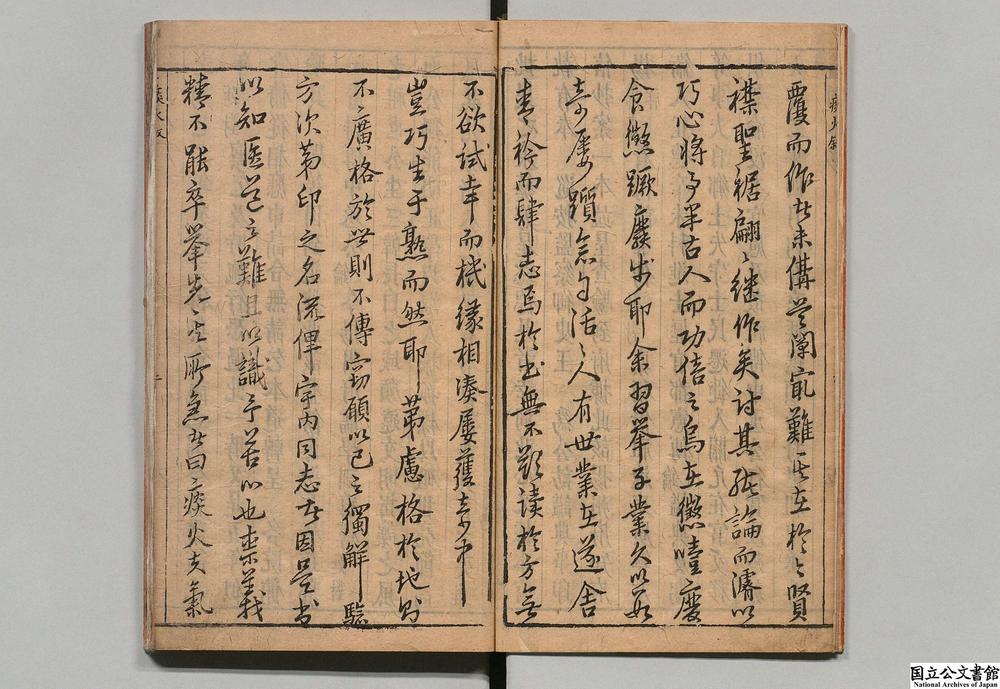 覆而作者未備荒闡宛難一正在於今賢
襟聖裾翩〻繼作矣討其殘論而濬以
巧心將事半古人而功倍之烏在懲噎廢
食懲蹶廢步耶余習舉子業久以數
奇屢躓念自活活人有世業在遂舍
青衿而肆志焉於書無不影讀於方無
不欲試幸而機緣相湊屢獲奇中
豈巧生于熟而然耶第慮格於地則
不廣格於世則不傳竊願以己之獨解驗
方次第印之名流俾宇內同志者因是書
以知医道之難且以識予苦心也柰義
精不能卒舉先其所急者曰痰火夫氣
痰火叙
国立公文書館
National Archives of Japan